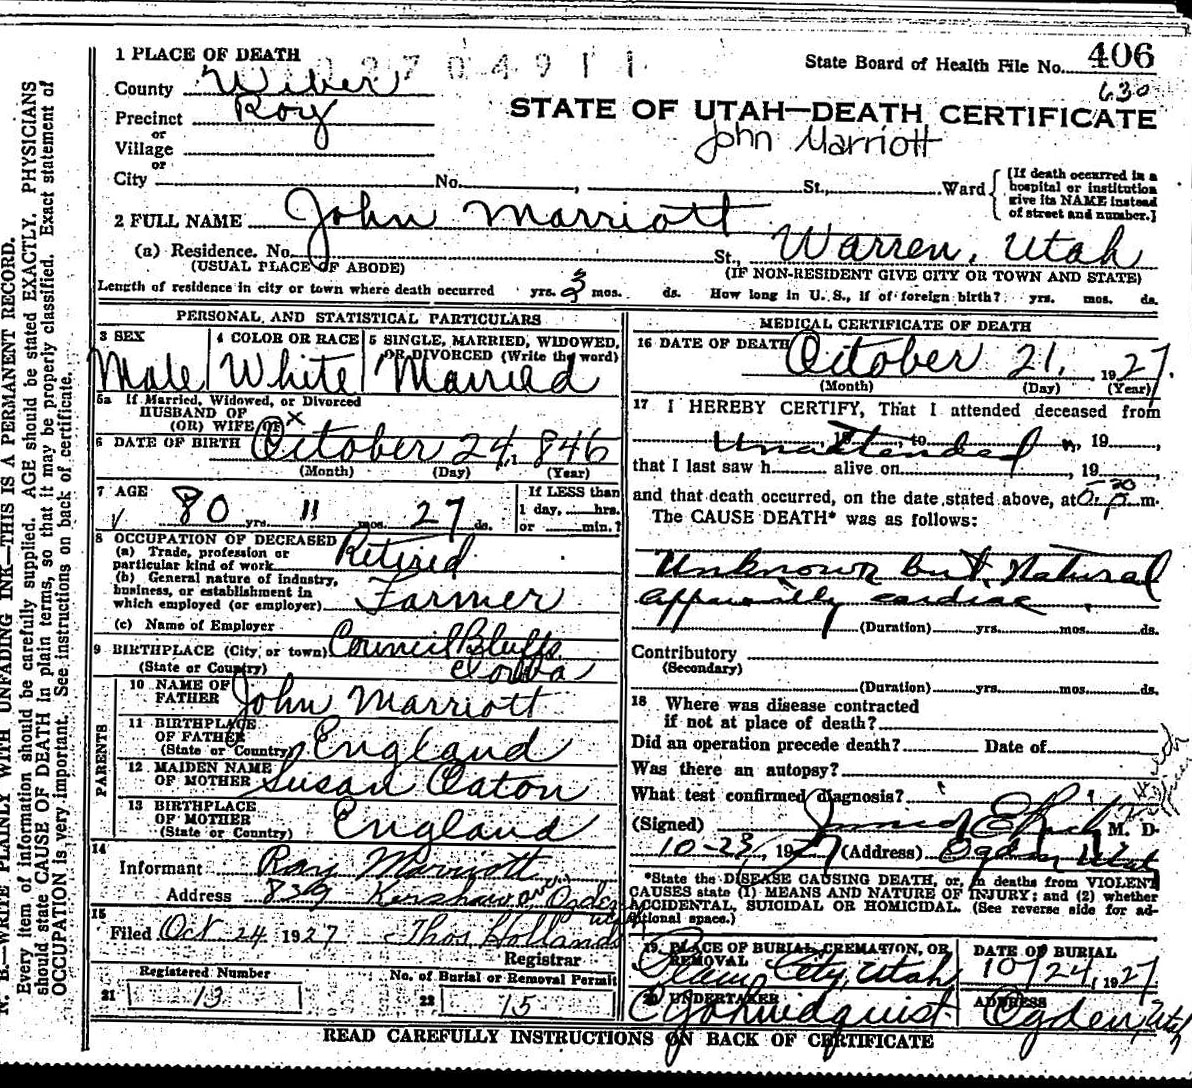 1 PLACE OF DEATH
2704911
State Board of Health File No. 406
630
County Weber
STATE OF UTAH—DEATH CERTIFICATE
Precinct Roy
or
John Marriott
Village
or
City No. , St., Ward
[If death occurred in a hospital or institution give its NAME instead of street and number.]
2 FULL NAME John Marriott
(a) Residence. No. St., Warren, Utah
(USUAL PLACE OF ABODE) (IF NON-RESIDENT GIVE CITY OR TOWN AND STATE)
Length of residence in city or town where death occurred yrs. 3 mos. ds. How long in U. S., if of foreign birth? yrs. mos. ds.
PERSONAL AND STATISTICAL PARTICULARS
3 SEX
Male
4 COLOR OR RACE
White
5 SINGLE, MARRIED, WIDOWED, OR DIVORCED (Write the word)
Married
5a If Married, Widowed, or Divorced
HUSBAND OF
(OR) WIFE OF
X
6 DATE OF BIRTH October 24, 1846
(Month) (Day) (Year)
7 AGE
80 yrs. 11 mos. 27 ds.
If LESS than
1 day, hrs.
or min.?
8 OCCUPATION OF DECEASED
(a) Trade, profession or
particular kind of work Retired
(b) General nature of industry,
business, or establishment in
which employed (or employer) Farmer
(c) Name of Employer
9 BIRTHPLACE (City or town) Council Bluffs
(State or Country) Iowa
PARENTS
10 NAME OF
FATHER John Marriott
11 BIRTHPLACE
OF FATHER
(State or Country) England
12 MAIDEN NAME
OF MOTHER Susan Eaton
13 BIRTHPLACE
OF MOTHER
(State or Country) England
14
Informant Ray Marriott
Address 839 Kershaw ave. Ogden Utah
15
Filed Oct 24 1927 Thos Hollands
Registrar
Registered Number
21 13
No. of Burial or Removal Permit
22 15
MEDICAL CERTIFICATE OF DEATH
16 DATE OF DEATH October 21, 1927.
(Month) (Day) (Year)
17 I HEREBY CERTIFY, That I attended deceased from
Unattended, 19, to , 19,
that I last saw h alive on , 19
and that death occurred, on the date stated above, at m.
The CAUSE DEATH* was as follows:
Unknown but Natural
apparently cardiac
(Duration) yrs. mos. ds.
Contributory
(Secondary)
(Duration) yrs. mos. ds.
18 Where was disease contracted
if not at place of death?
Did an operation precede death? Date of
Was there an autopsy?
What test confirmed diagnosis?
(Signed) M. D.
10-23, 1927 (Address) Ogden Utah
*State the DISEASE CAUSING DEATH, or, in deaths from VIOLENT
CAUSES state (1) MEANS AND NATURE OF INJURY; and (2) whether
ACCIDENTAL, SUICIDAL OR HOMICIDAL. (See reverse side for additional space.)
19 PLACE OF BURIAL, CREMATION, OR
REMOVAL Plain City, Utah
DATE OF BURIAL
10/24, 1927
20 UNDERTAKER
C J A Lindquist
ADDRESS
Ogden, Utah
READ CAREFULLY INSTRUCTIONS ON BACK OF CERTIFICATE
N. B.—WRITE PLAINLY WITH UNFADING INK—THIS IS A PERMANENT RECORD.
Every item of information should be carefully supplied. AGE should be stated EXACTLY. PHYSICIANS
should state CAUSE OF DEATH in plain terms, so that it may be properly classified. Exact statement of
OCCUPATION is very important. See instructions on back of certificate.